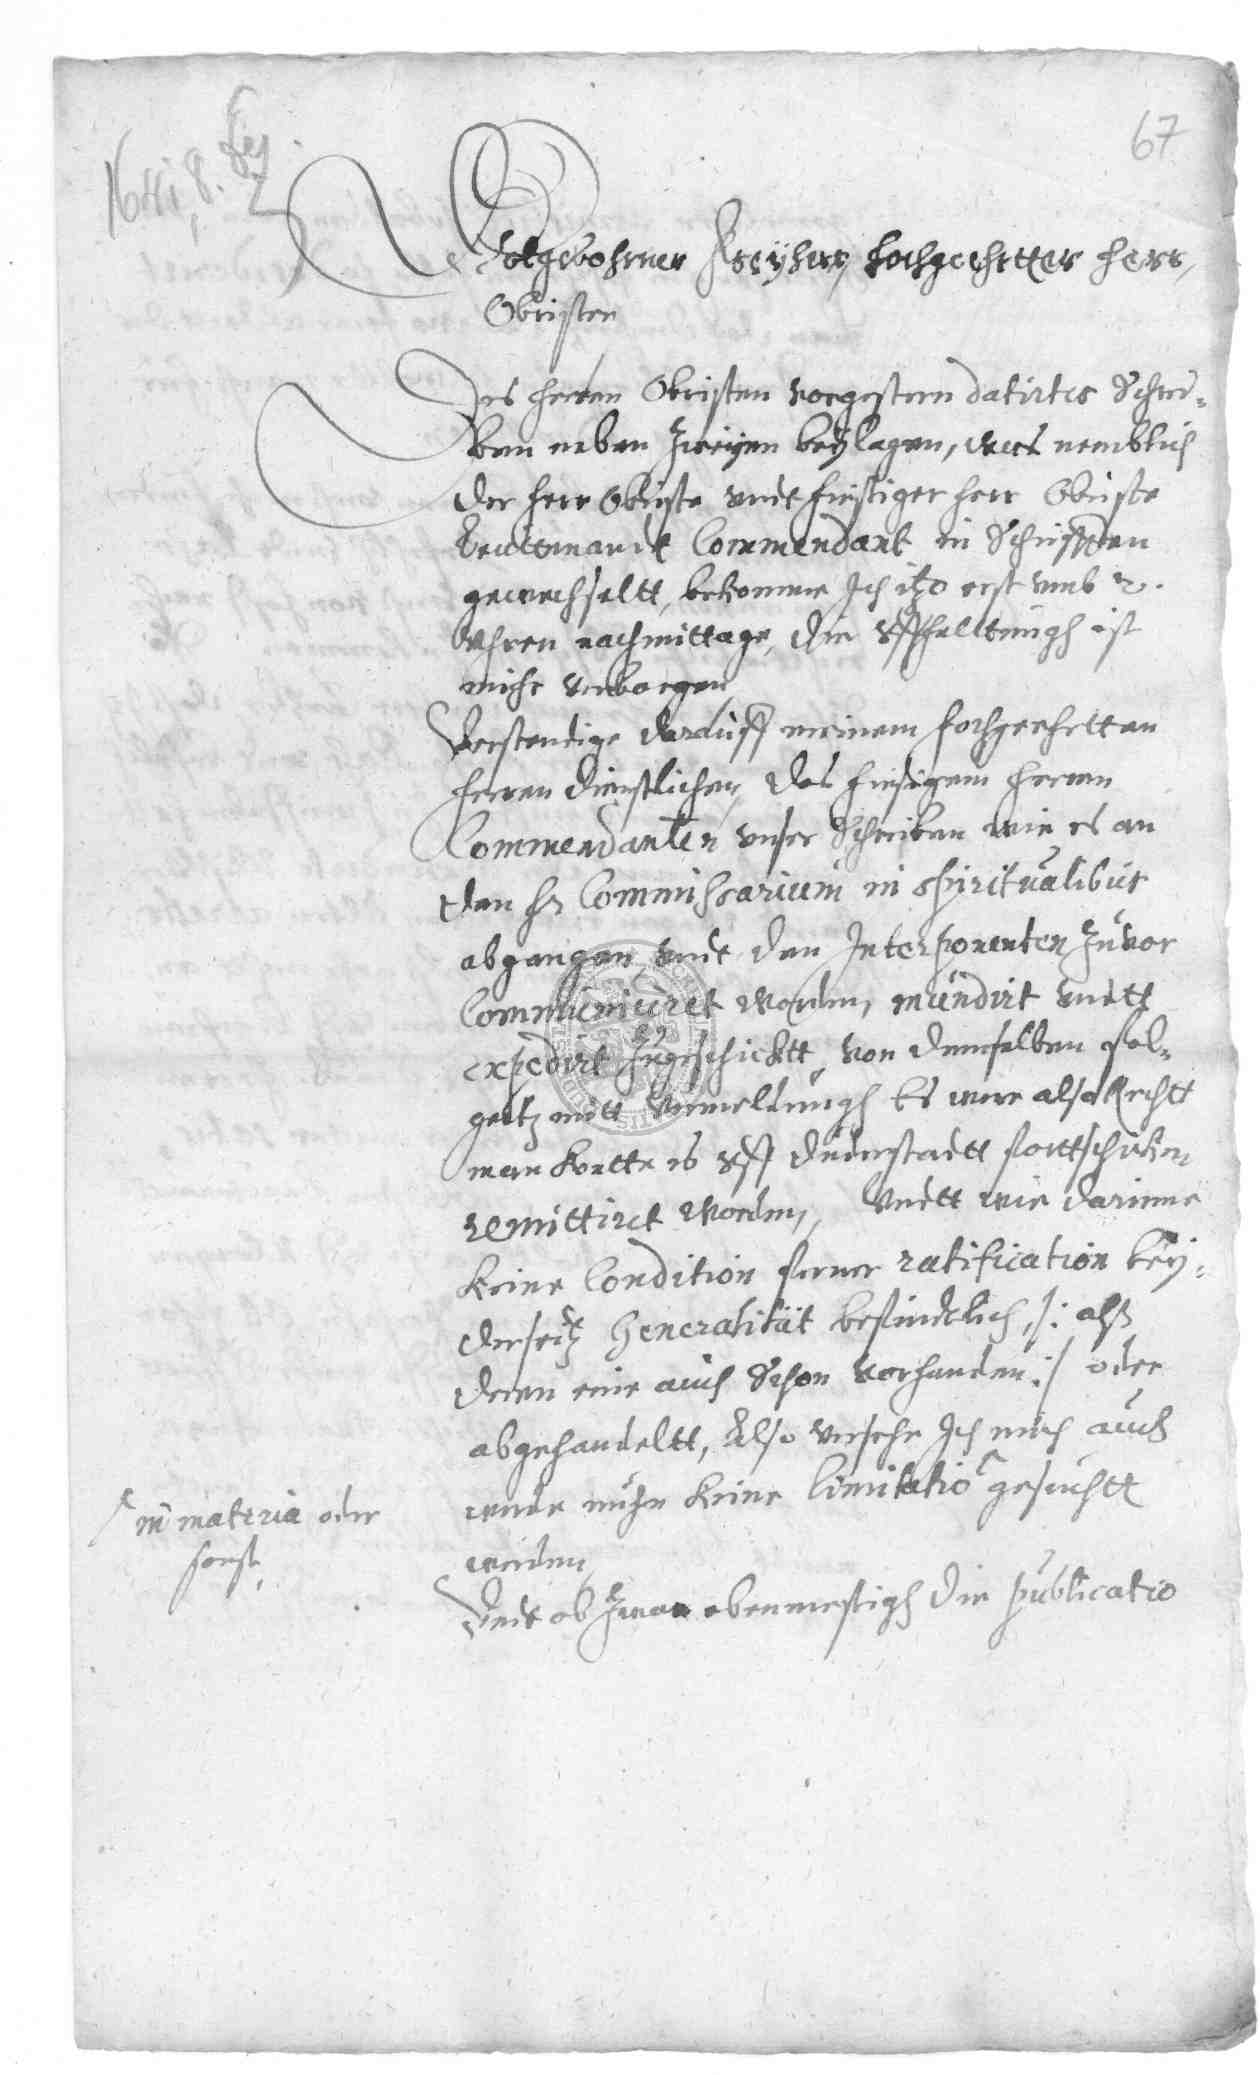 67
1641, 8.
Wolgebohrner Freyherr, hochgeehrter Herr,
Obrister
Des Herren Obristen vorgestern datirtes Schrei-
ben neben zweyen beylagen, was nemblich
der Herr Obriste undt hiesiger Herr Obriste
Leutenandt Commendant in Schrifften
gewechseltt, bekomme Ich itzo erst umb 2.
Uhren nachmittage, die Uffhalltungh ist
mihr verborgen,
Verstendige daruff meinem hochgeehrtten
Herren dienstlichen, das hiesigem Herren
Commendanten unser Schreiben wie es an
den Hr Commissarium in spiritualibus
abgangen, undt den Interponenten zuvor
Communiciret worden, mundirt undtt
expedirt zugeschicktt, von demselben fol-
gentz mitt vermeldungh Es were also Rechtt
man kontte es uff Duderstadtt forttschicken
remittiret worden, Undtt wie darinne
keine Condition ferner ratification bey-
derseitz Generalität befindtlich, /: alß
deren eine auch Schon vorhanden :/ oder
abgehandeltt, Also versehe Ich mich auch
werde nuhn keine limitatio gesuchtt
werden,
in materia oder
sonst,
Undt ob zwar ebenmessigh die publicatio